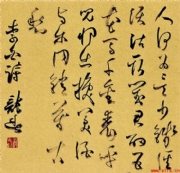 人何为言少钱径
须沽取对君酌
五花马千金裘呼
儿将出换美酒
与尔同销万古
愁
李白诗